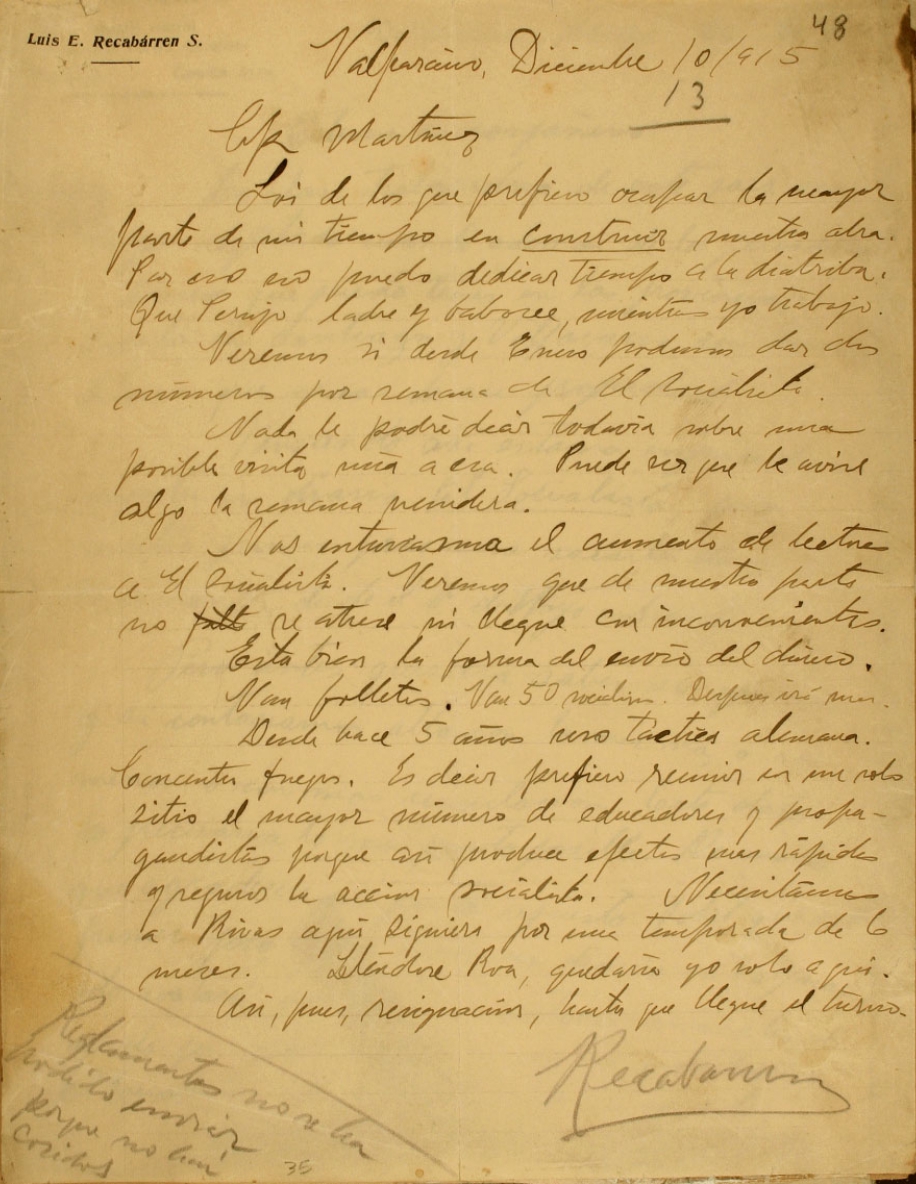 48
Luis E. Recabárren S.
Valparaiso, Diciembre 10/915
13
Martínez
Soi de los que prefiero ocupar la mayor
parte de mi tiempo en construir nuestra obra.
Por eso no puedo dedicar tiempo a la diatriba.
Que ladre y babosee, mientras yo trabajo.
Veremos si desde Enero podemos dar dos
números por semana de El Socialista.
Nada le podré decir todavía sobre una
posible visita mia a esa. Puede ser que le avise
algo la semana venidera.
Nos entusiasma el aumento de lectores
a El Socialista. Veremos que de nuestra parte
no falte se atrase ni llegue con inconvenientes.
Esta bien la forma del envío del dinero.
Van folletos. Van 50 socialismo. Despues irá mas.
Desde hace 5 años uso táctica alemana.
Concentrar fuegos. Es decir prefiero reunir en un solo
sitio el mayor número de educadores y propa-
gandistas porque así produce efectos mas rápidos
y seguros la accion socialista. Necesitamos
a Rivas aquí siquiera por una temporada de 6
meses. Roa, quedaría yo solo aquí.
Así, pues, resignacion, hasta que llegue el turno.
Recabarren
Reglamentos no se ha
podido enviar
porque no hai
cosidos
35